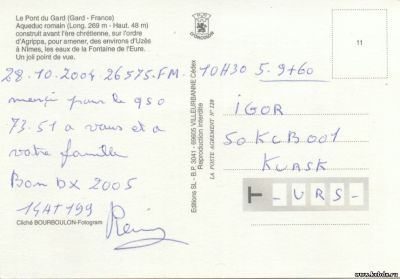 Le Pont du Gard (Gard - France)
Aqueduc romain (Long. 269 m - Haut. 48 m)
construit avant l'ère chrétienne, sur l'ordre
d'Agrippa, pour amener, des environs d'Uzès
à Nîmes, les eaux de la Fontaine de l'Eure.
Un joli point de vue.
28.10.2004.26575.FM. 10H30 5.9+60
merçi pour le qso
73.51 a vous et a
votre famille
Bon DX 2005
14AT199
Rémi
Cliché BOURBOULON-Fotogram
Editions SL - B.P. 3041 - 69605 VILLEURBANNE Cédex
Reproduction interdite
LA POSTE AGREMENT N° 128
11
IGOR
50KCB001
KURSK
- URS -
www.kabda.ru